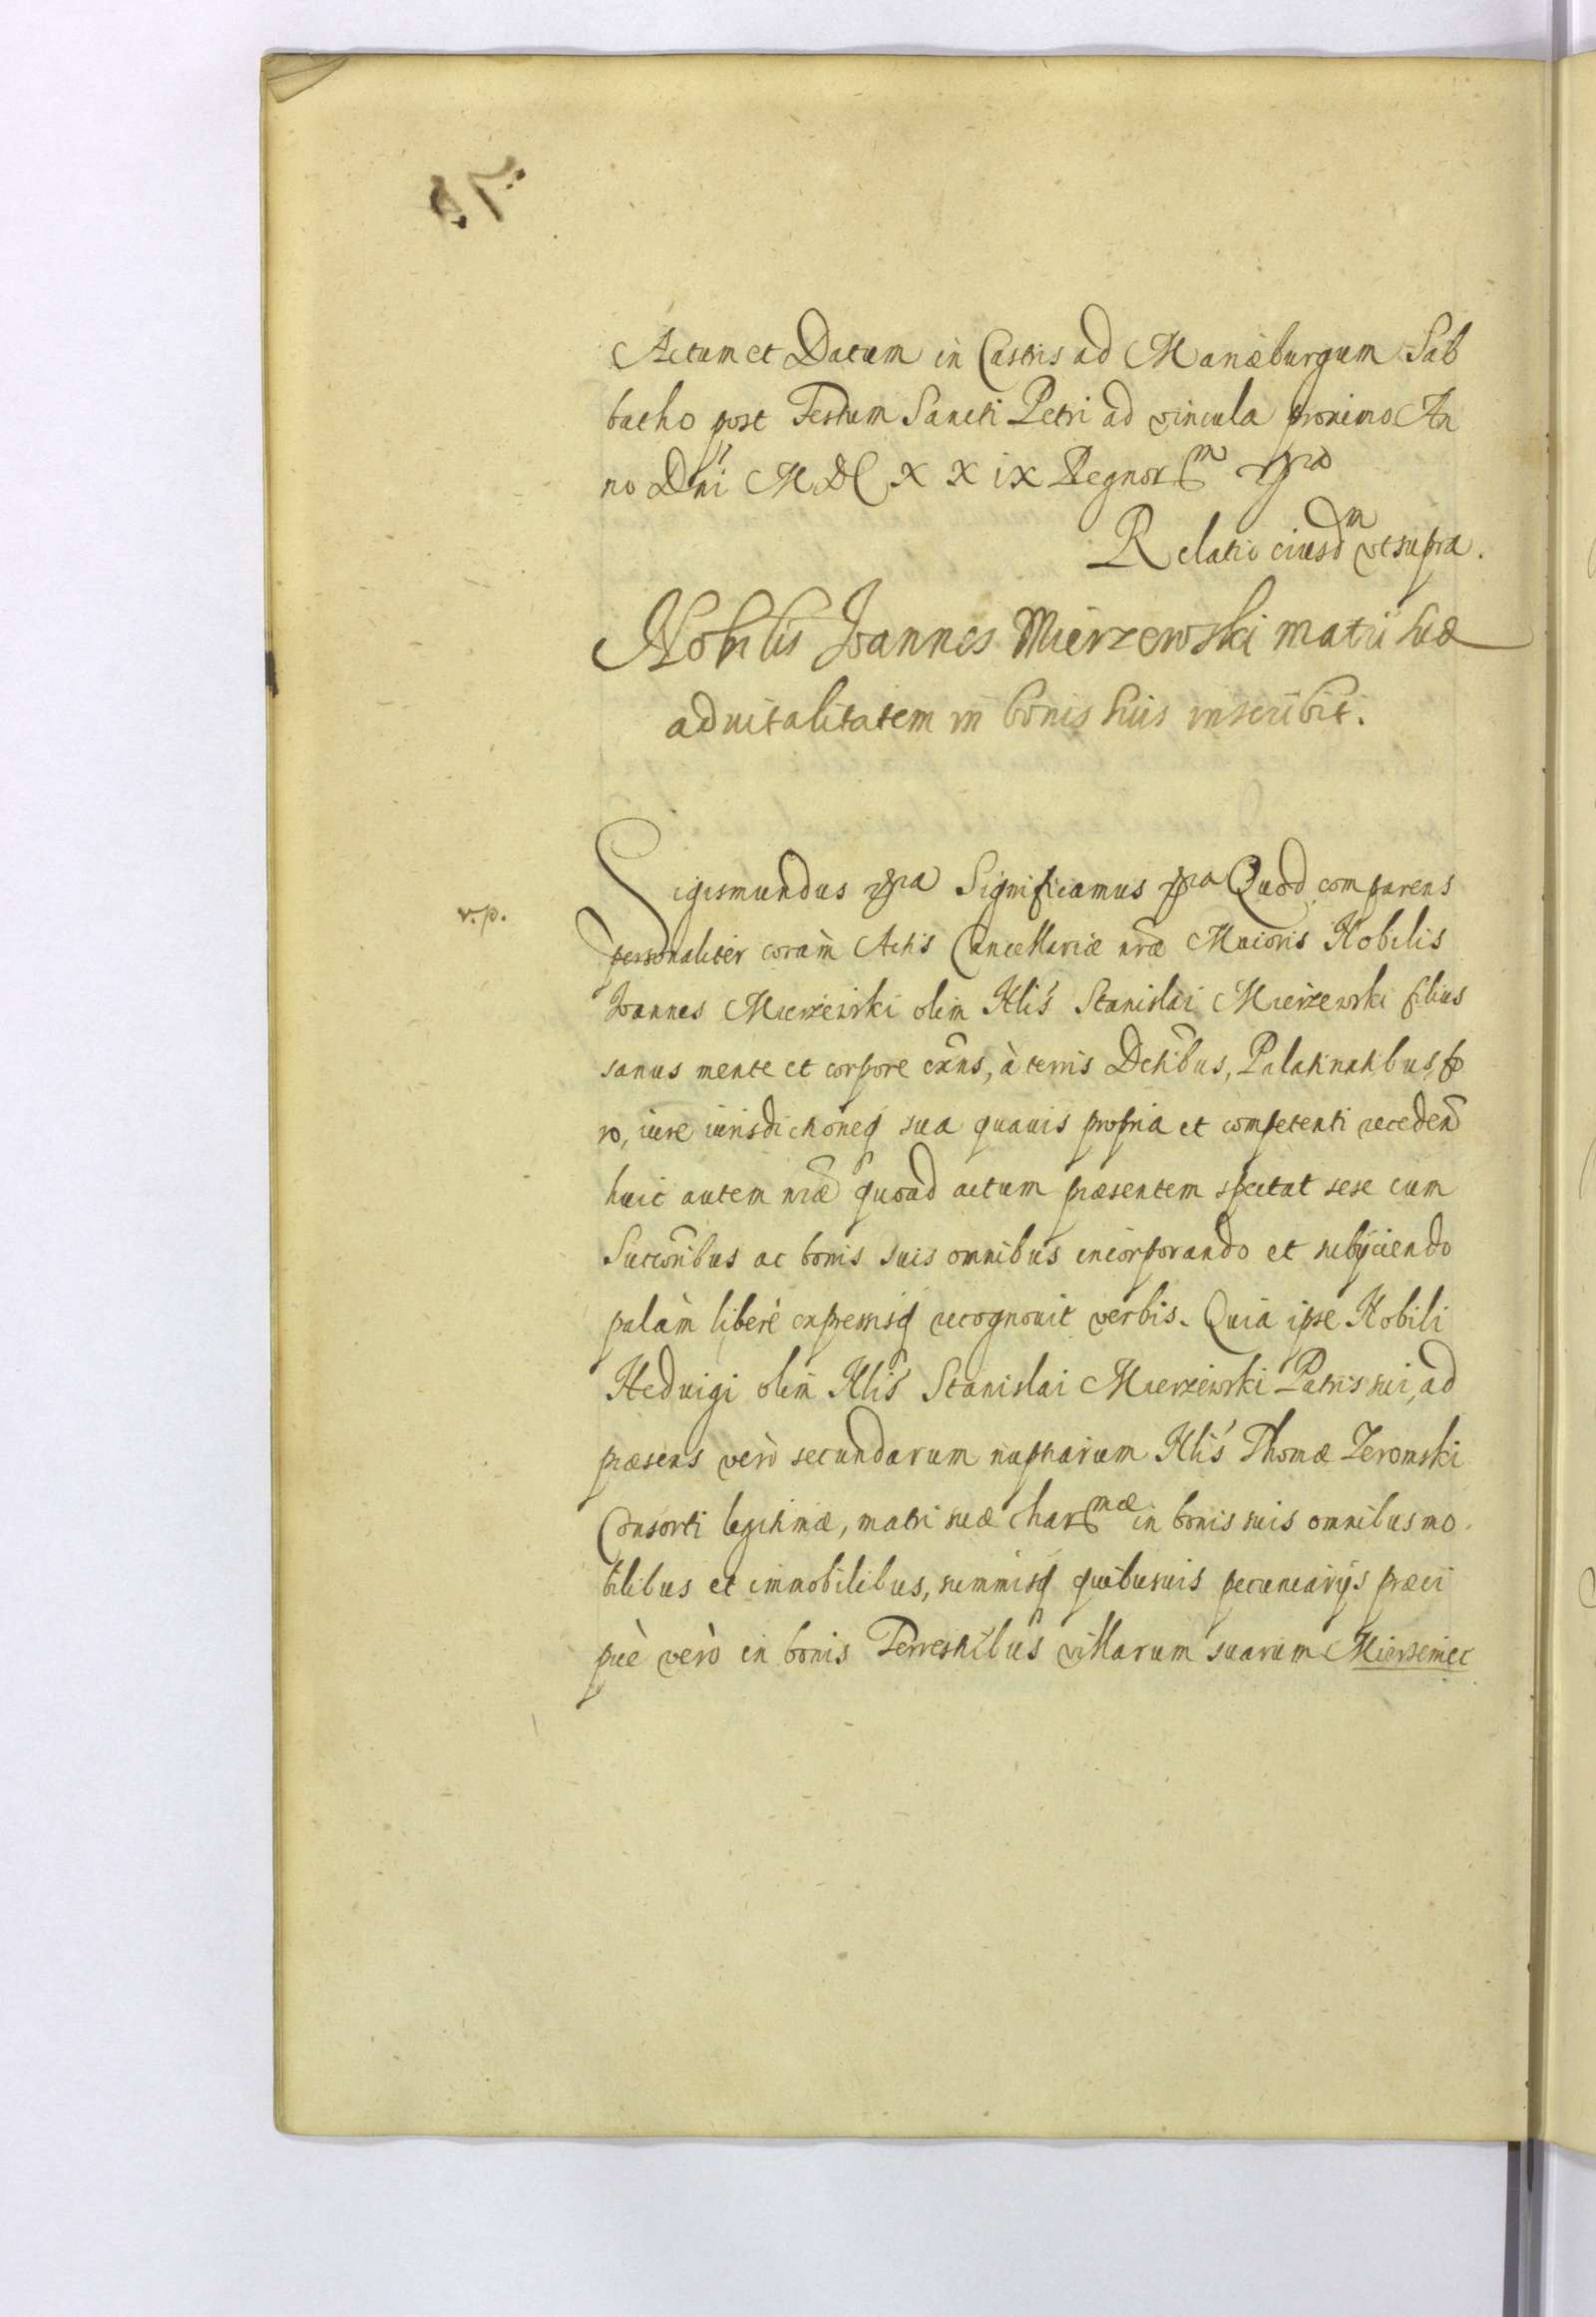 Actum et Datum in Castris ad Mariæburgum Sab
batho post Festum Sancti Petri ad vincula proximo An
no Dni MDCXXIX Regnor͂m
Relatio eiusdm vt supra.
Nobilis Joannes Mierzewski matri suæ
aduitalitatem in bonis suis inscribit.
v.p.
Sigismundus Significamus Quod comparens
personaliter coràm Actis Cancellariæ nr̃æ Maioris Nobilis
Joannes Mierzewski olim Nlis Stanislai Mierzewski filius
sanus mente et corpore exñs, à terris Dctibus, Palatinatibus, fo
ro, iure iurisdictioneq sua quauis propria et competenti receden̄
huic autem nr̃æ quoad actum præsentem spectat sese cum
Succõribus ac bonis suis omnibus incorporando et subijciendo
palàm liberè expressisq recognouit verbis. Quia ipse Nobili
Heduigi olim Nlis Stanislai Mierzewski Patris sui, ad
præsens verò secundarum nuptiarum Nlis Thomæ Zeromski
Consorti legitimæ, matri suæ charmæ in bonis suis omnibus mo
bilibus et immobilibus, summisq quibusuis pecuniarijs præci
puè verò in bonis Terrestribus villarum suarum Mierzeniec